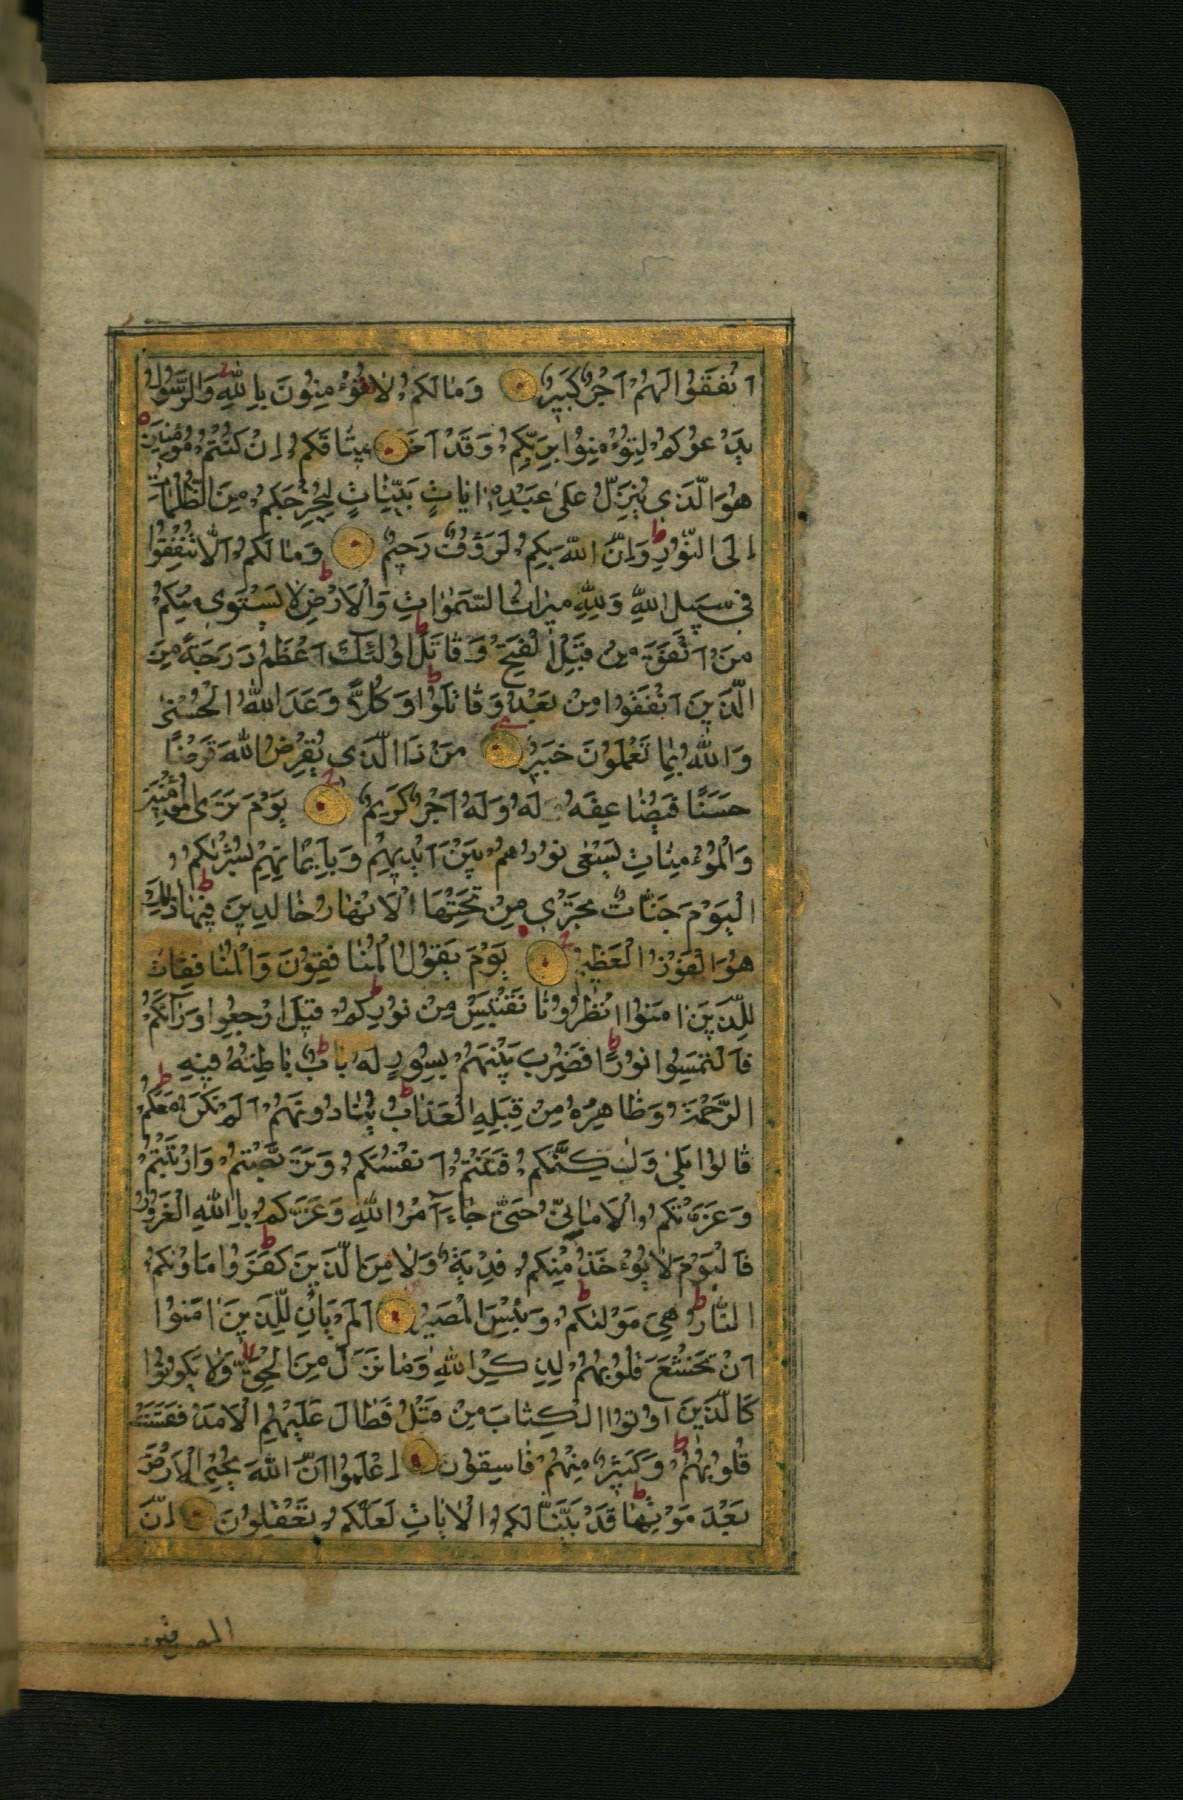 اَنْفَقُوا لَهُمْ اَجْرٌ كَبٖيرٌ وَمَا لَكُمْ لَا تُؤْمِنُونَ بِاللّٰهِ وَالرَّسُولُ
يَدْعُوكُمْ لِتُؤْمِنُوا بِرَبِّكُمْ وَقَدْ اَخَذَ مٖيثَاقَكُمْ اِنْ كُنْتُمْ مُؤْمِنٖينَ
هُوَ الَّذٖى يُنَزِّلُ عَلٰى عَبْدِهٖ اٰيَاتٍ بَيِّنَاتٍ لِيُخْرِجَكُمْ مِنَ الظُّلُمَاتِ
اِلَى النُّورِ وَاِنَّ اللّٰهَ بِكُمْ لَرَؤُفٌ رَحٖيمٌ وَمَا لَكُمْ اَلَّا تُنْفِقُوا
فٖى سَبٖيلِ اللّٰهِ وَلِلّٰهِ مٖيرَاثُ السَّمٰوَاتِ وَالْاَرْضِ لَا يَسْتَوٖى مِنْكُمْ
مَنْ اَنْفَقَ مِنْ قَبْلِ الْفَتْحِ وَقَاتَلَ اُولٰئِكَ اَعْظَمُ دَرَجَةً مِنَ
الَّذٖينَ اَنْفَقُوا مِنْ بَعْدُ وَقَاتَلُوا وَكُلًّا وَعَدَ اللّٰهُ الْحُسْنٰى
وَاللّٰهُ بِمَا تَعْمَلُونَ خَبٖيرٌ مَنْ ذَا الَّذٖى يُقْرِضُ اللّٰهَ قَرْضًا
حَسَنًا فَيُضَاعِفَهُ لَهُ وَلَهُ اَجْرٌ كَرٖيمٌ يَوْمَ تَرَى الْمُؤْمِنٖينَ
وَالْمُؤْمِنَاتِ يَسْعٰى نُورُهُمْ بَيْنَ اَيْدٖيهِمْ وَبِاَيْمَانِهِمْ بُشْرٰيكُمُ
الْيَوْمَ جَنَّاتٌ تَجْرٖى مِنْ تَحْتِهَا الْاَنْهَارُ خَالِدٖينَ فٖيهَا ذٰلِكَ
هُوَ الْفَوْزُ الْعَظٖيمُ يَوْمَ يَقُولُ الْمُنَافِقُونَ وَالْمُنَافِقَاتُ
لِلَّذٖينَ اٰمَنُوا انْظُرُونَا نَقْتَبِسْ مِنْ نُورِكُمْ قٖيلَ ارْجِعُوا وَرَاءَكُمْ
فَالْتَمِسُوا نُورًا فَضُرِبَ بَيْنَهُمْ بِسُورٍ لَهُ بَابٌ بَاطِنُهُ فٖيهِ
الرَّحْمَةُ وَظَاهِرُهُ مِنْ قِبَلِهِ الْعَذَابُ يُنَادُونَهُمْ اَلَمْ نَكُنْ مَعَكُمْ
قَالُوا بَلٰى وَلٰكِنَّكُمْ فَتَنْتُمْ اَنْفُسَكُمْ وَتَرَبَّصْتُمْ وَارْتَبْتُمْ
وَغَرَّتْكُمُ الْاَمَانِىُّ حَتّٰى جَاءَ اَمْرُ اللّٰهِ وَغَرَّكُمْ بِاللّٰهِ الْغَرُورُ
فَالْيَوْمَ لَا يُؤْخَذُ مِنْكُمْ فِدْيَةٌ وَلَا مِنَ الَّذٖينَ كَفَرُوا مَاْوٰيكُمُ
النَّارُ هِىَ مَوْلٰيكُمْ وَبِئْسَ الْمَصٖيرُ اَلَمْ يَاْنِ لِلَّذٖينَ اٰمَنُوا
اَنْ تَخْشَعَ قُلُوبُهُمْ لِذِكْرِ اللّٰهِ وَمَا نَزَلَ مِنَ الْحَقِّ وَلَا يَكُونُوا
كَالَّذٖينَ اُوتُوا الْكِتَابَ مِنْ قَبْلُ فَطَالَ عَلَيْهِمُ الْاَمَدُ فَقَسَتْ
قُلُوبُهُمْ وَكَثٖيرٌ مِنْهُمْ فَاسِقُونَ اِعْلَمُوا اَنَّ اللّٰهَ يُحْيِى الْاَرْضَ
بَعْدَ مَوْتِهَا قَدْ بَيَّنَّا لَكُمُ الْاٰيَاتِ لَعَلَّكُمْ تَعْقِلُونَ اِنَّ